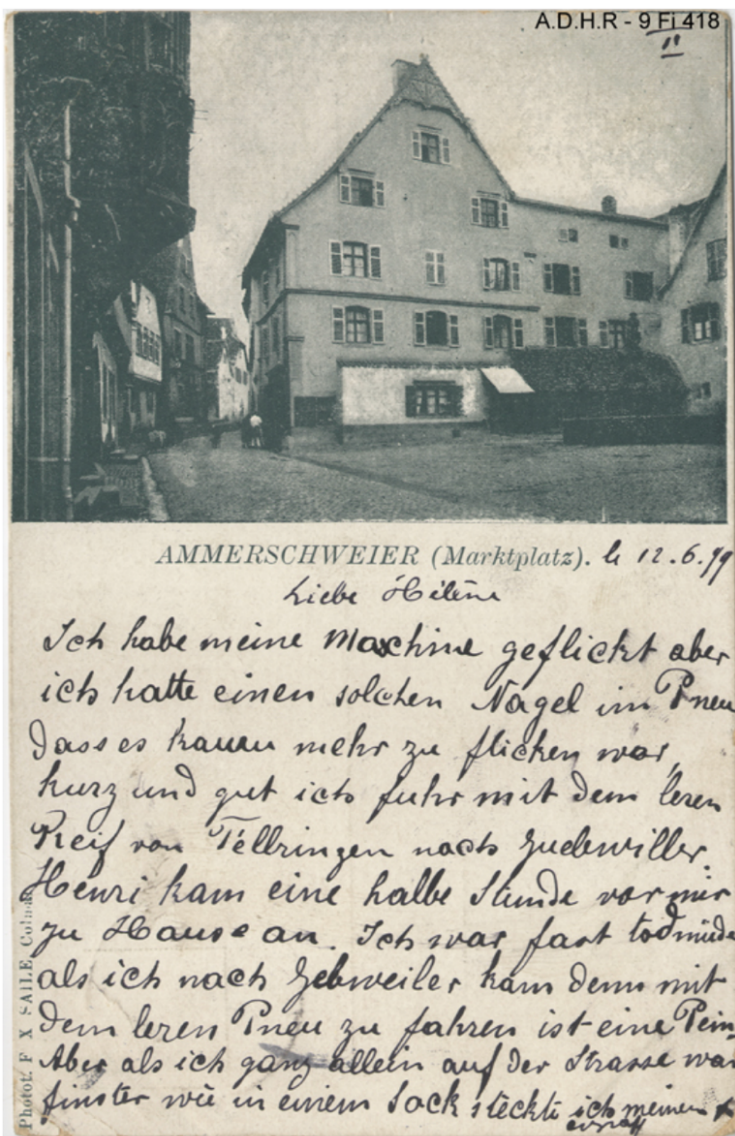 A.D.H.R - 9 Fi 418
II
AMMERSCHWEIER (Marktplatz). le 12.6.99
Liebe Hélène
Ich habe meine Maschine geflickt aber
ich hatte einen solchen Nagel im Pneu
dass es kaum mehr zu flicken war,
kurz und gut ich fuhr mit dem leren
Reif von Téllringen nach Guebwiller.
Henri kam eine halbe Stunde vor mir
zu Hause an. Ich war fast todmüde
als ich nach Gebweiler kam denn mit
dem leren Pneu zu fahren ist eine Pein.
Aber als ich ganz allein auf der Strasse war
finster wie in einem Sack steckte ich meinen
Photot. F X SAILE Colmar